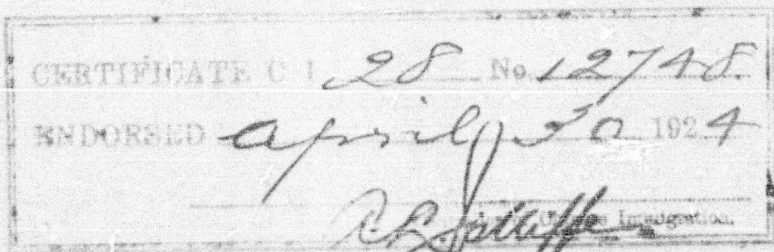 CERTIFICATE C I 28 No 12748.
ENDORSED April 30 1924
Chinese Immigration.